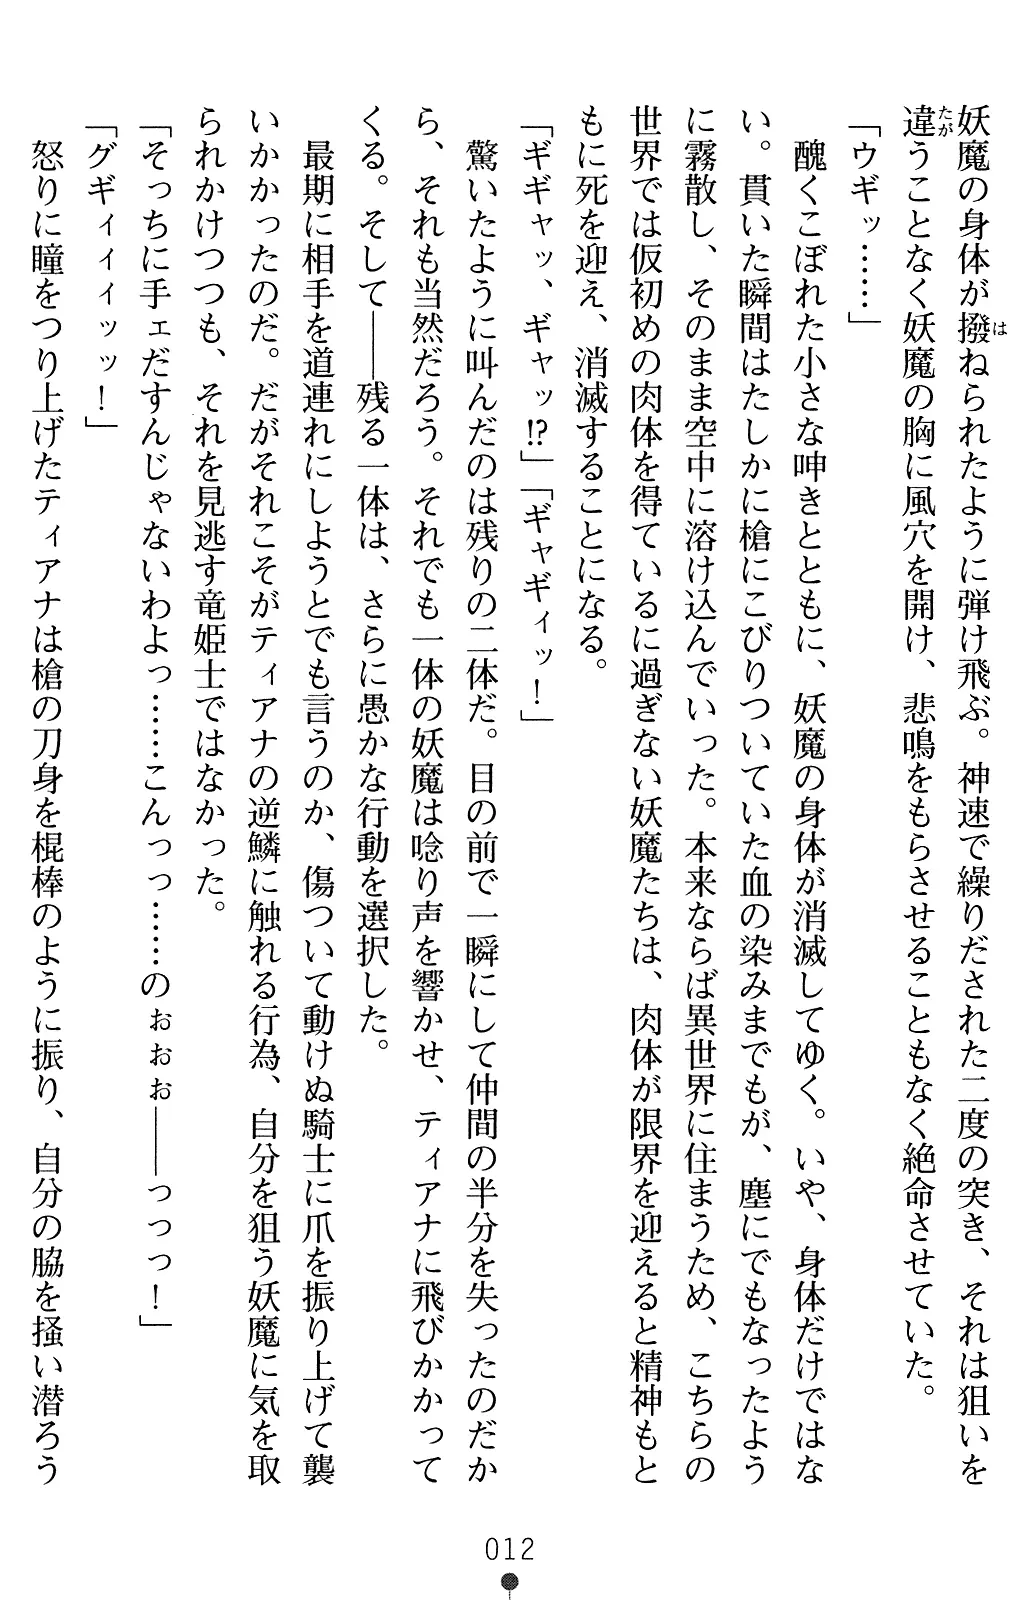 妖魔の身体が撥ねられたように弾け飛ぶ。神速で繰りだされた二度の突き、それは狙いを
違うことなく妖魔の胸に風穴を開け、悲鳴をもらさせることもなく絶命させていた。
「ウギッ……」
醜くこぼれた小さな呻きとともに、妖魔の身体が消滅してゆく。いや、身体だけではな
い。貫いた瞬間はたしかに槍にこびりついていた血の染みまでもが、塵にでもなったよう
に霧散し、そのまま空中に溶け込んでいった。本来ならば異世界に住まうため、こちらの
世界では仮初めの肉体を得ているに過ぎない妖魔たちは、肉体が限界を迎えると精神もと
もに死を迎え、消滅することになる。
「ギギャッ、ギャッ!?」「ギャギィッ！」
驚いたように叫んだのは残りの二体だ。目の前で一瞬にして仲間の半分を失ったのだか
ら、それも当然だろう。それでも一体の妖魔は唸り声を響かせ、ティアナに飛びかかって
くる。そして――残る一体は、さらに愚かな行動を選択した。
最期に相手を道連れにしようとでも言うのか、傷ついて動けぬ騎士に爪を振り上げて襲
いかかったのだ。だがそれこそがティアナの逆鱗に触れる行為、自分を狙う妖魔に気を取
られかけつつも、それを見逃す竜姫士ではなかった。
「そっちに手ェだすんじゃないわよっ……こんっっ……のぉぉぉ――っっっ！」
「グギィィィッッ！」
怒りに瞳をつり上げたティアナは槍の刀身を棍棒のように振り、自分の脇を掻い潜ろう
たが
は
012